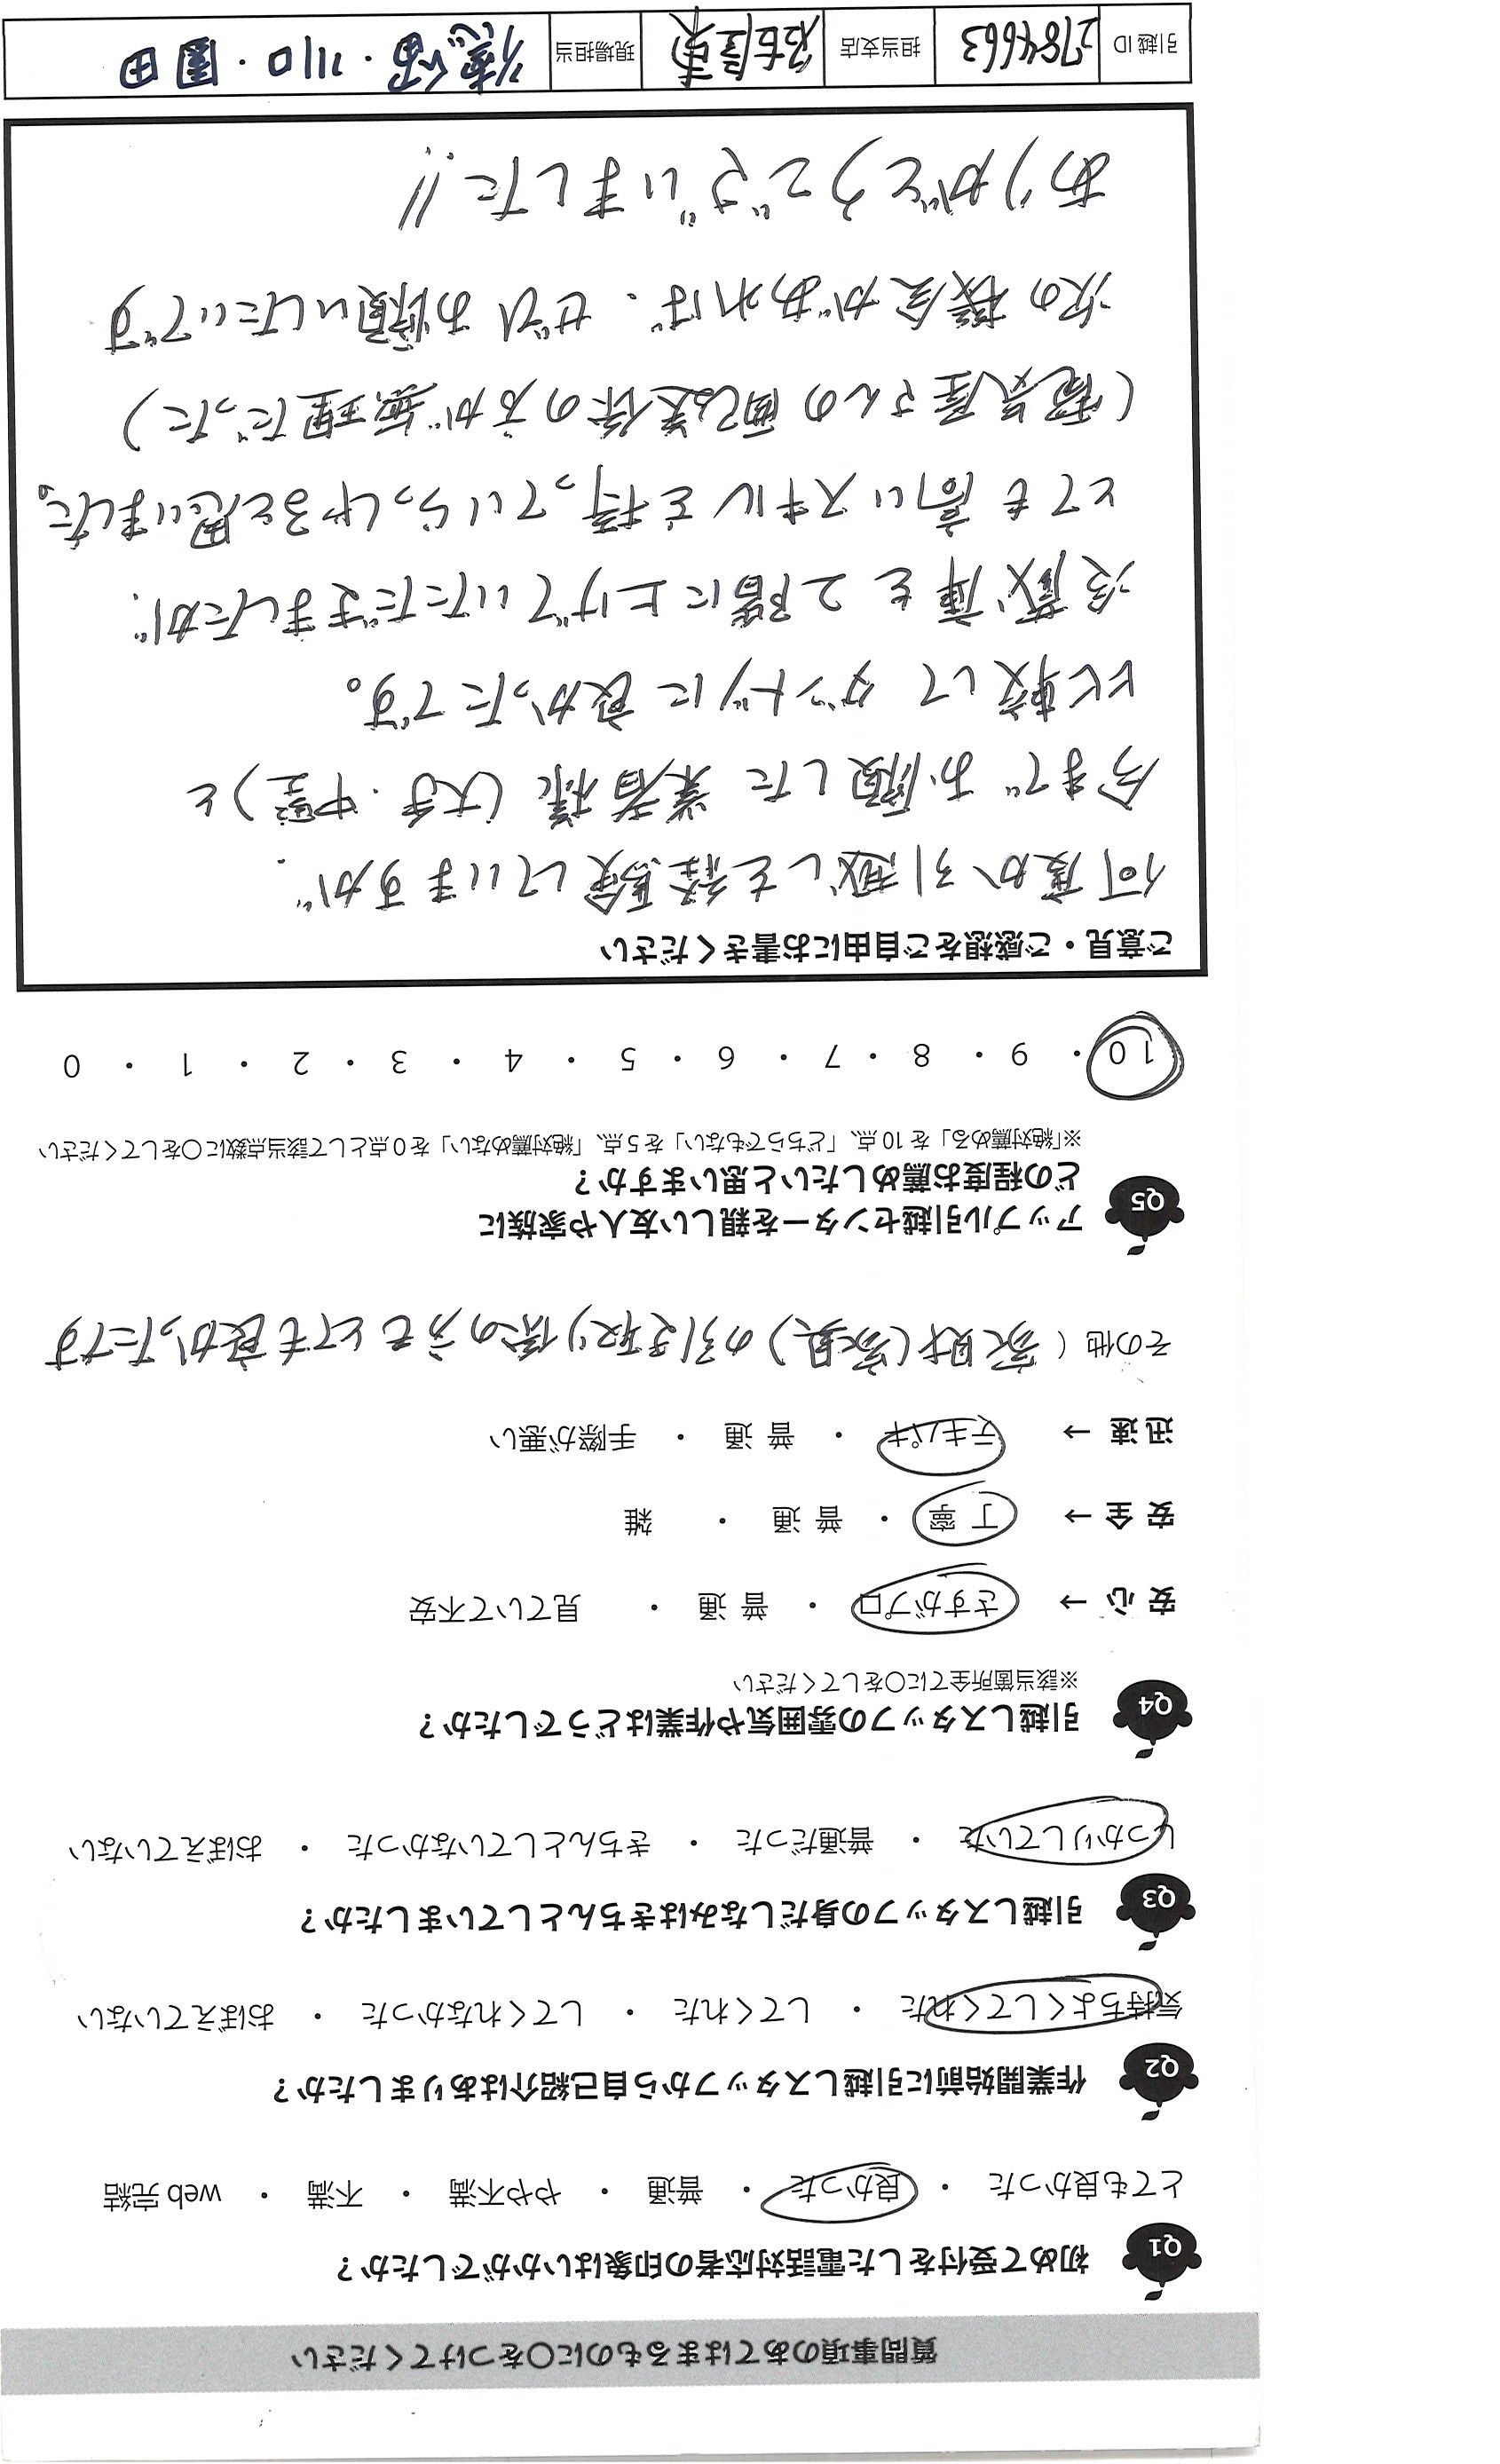 質問事項のあてはまるものに〇をつけてください
Q1 初めて受付をした電話対応者の印象はいかがでしたか？
とても良かった ・ 良かった ・ 普通 ・ やや不満 ・ 不満 ・ web 完結
Q2 作業開始前に引越しスタッフから自己紹介はありましたか？
気持ちよくしてくれた ・ してくれた ・ してくれなかった ・ おぼえていない
Q3 引越しスタッフの身だしなみはきちんとしていましたか？
しっかりしていた ・ 普通だった ・ きちんとしていなかった ・ おぼえていない
Q4 引越しスタッフの雰囲気や作業はどうでしたか？
※該当箇所全てに〇をしてください
安 心 → さすがプロ ・ 普 通 ・ 見ていて不安
安 全 → 丁 寧 ・ 普 通 ・ 雑
迅 速 → テキパキ ・ 普 通 ・ 手際が悪い
その他（ 家財(家具)の引き取り係の方もとても良かったです
Q5 アップル引越センターを親しい友人や家族に
どの程度お薦めしたいと思いますか？
※「絶対薦める」を 10 点、「どちらでもない」を 5 点、「絶対薦めない」を 0 点として該当点数に〇をしてください
10 ・ 9 ・ 8 ・ 7 ・ 6 ・ 5 ・ 4 ・ 3 ・ 2 ・ 1 ・ 0
ご意見・ご感想をご自由にお書きください
何度か引越しを経験していますが、
今までお願した業者様（大手・中堅）と
比較して ダントツに良かったです。
冷蔵庫を2階に上げていただきましたが、
とても高いスキルを持っていらっしゃると思いました。
(電気屋さんの配送係の方が無理だった)
次の機会があれば、ぜひお願いしたいです
ありがとうございました!!
引越 ID 2784663 担当支店 名古屋東 現場担当 ・川口・園田